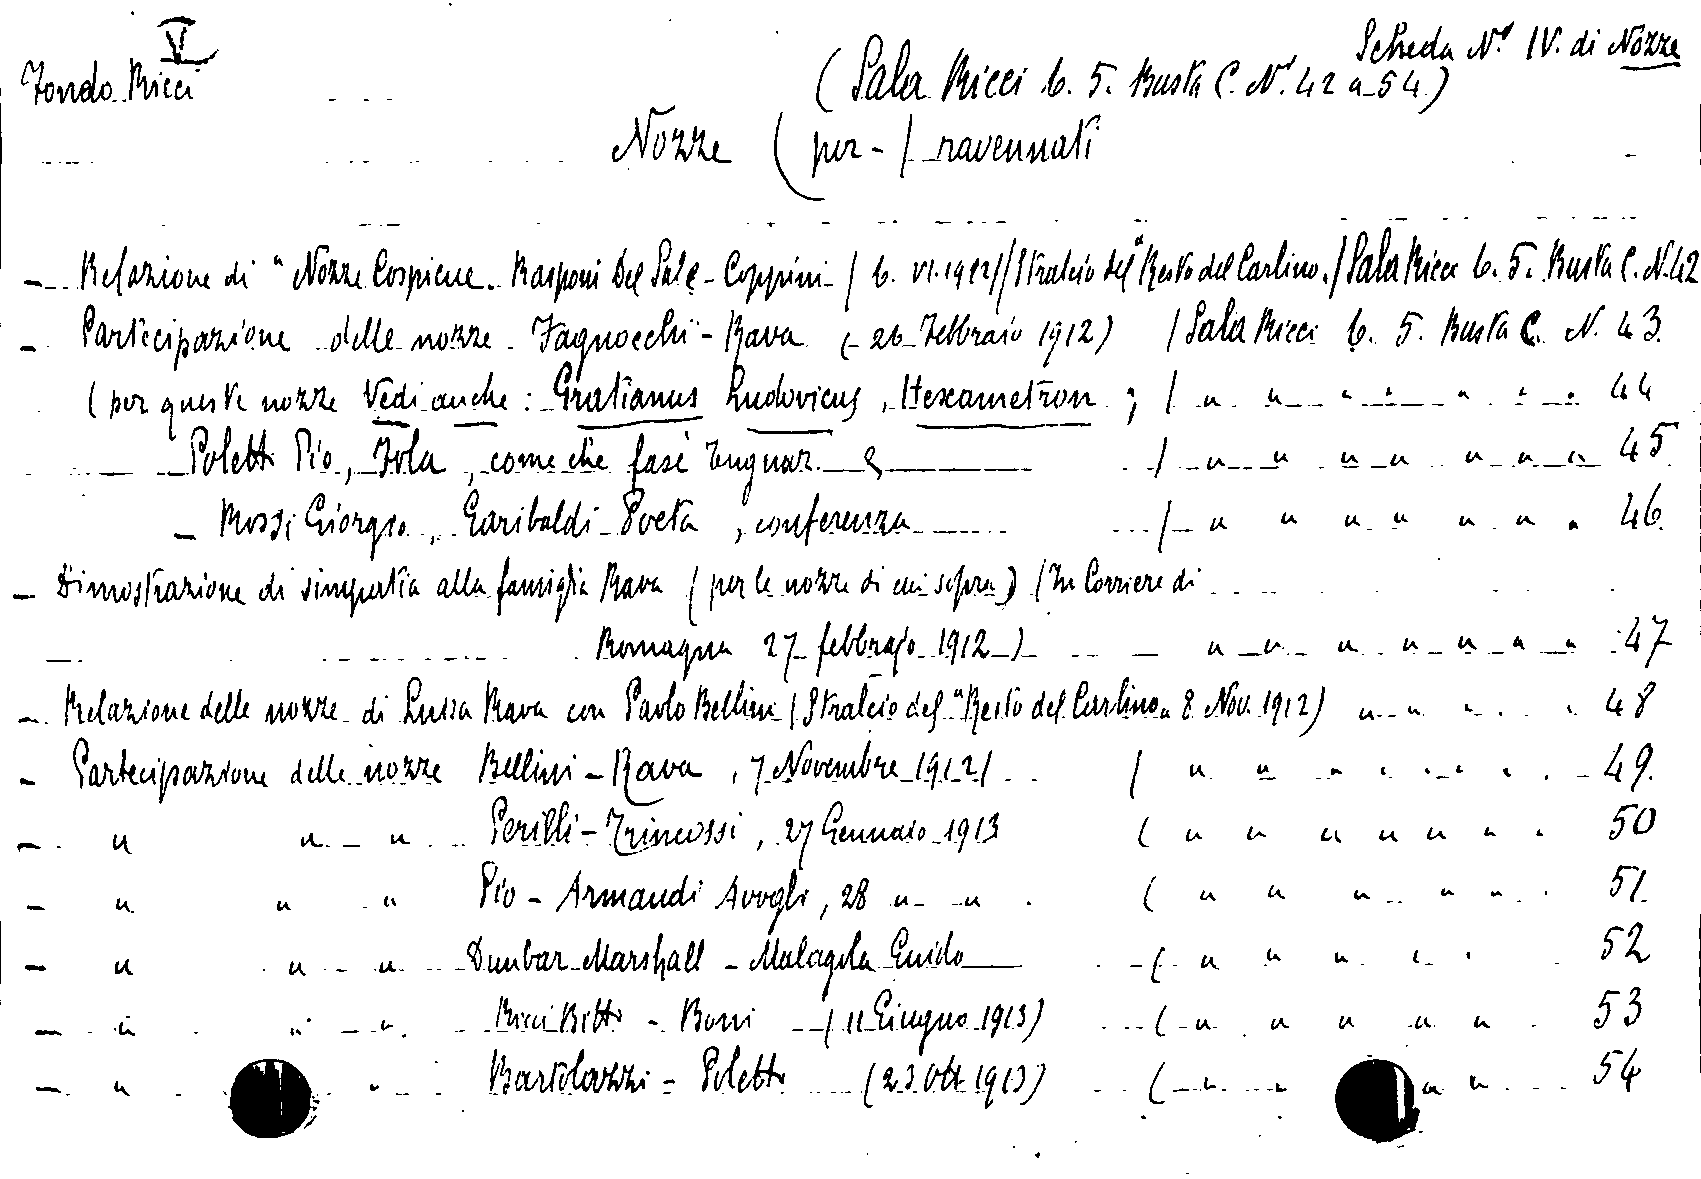 V
Scheda N.º IV. di Nozze
Fondo Ricci
(Sala Ricci b. 5. Busta C. N. 42 a 54)
Nozze (per - / ravennati
- Relazione di "Nozze Cospicue. Rasponi Del Sale - Coppini / 6. VI. 1912 / (Stralcio del "Resto del Carlino. / Sala Ricci b. 5. Busta C. N. 42
- Partecipazione delle nozze Fagnocchi - Rava (26 Febbraio 1912) / Sala Ricci b. 5. Busta C. N. 43.
(per queste nozze Vedi anche: Gratianus Ludovicus, Hexametron ; / " " " " " " " 44
Poletti Pio, Fola, come che fasè / " " " " " " " 45
- Rossi Giorgio, Garibaldi Poeta, conferenza / " " " " " " " 46.
- Dimostrazione di simpatia alla famiglia Rava (per le nozze di cui sopra) (In Corriere di
Romagna 27 febbraio 1912) " " " " " " " 47
- Relazione delle nozze di Luisa Rava con Paolo Bellini (Stralcio del "Resto del Carlino" 8 Nov. 1912) " " " " 48
- Partecipazione delle nozze Bellini - Rava, 7 Novembre 1912 / / " " " " " " " 49.
- " " " Perilli - Trincossi, 27 Gennaio 1913 ( " " " " " " " 50
- " " " Pio - Armandi Avogli, 28 " " ( " " " " " " 51.
- " " " Dunbar Marshall - Malagola Guido ( " " " " " 52
- " " " Ricci Bitti - Boni (11 Giugno 1913) ( " " " " " 53
- " " Bartolazzi - Poletti (23 Ott. 1913) ( " " " " 54